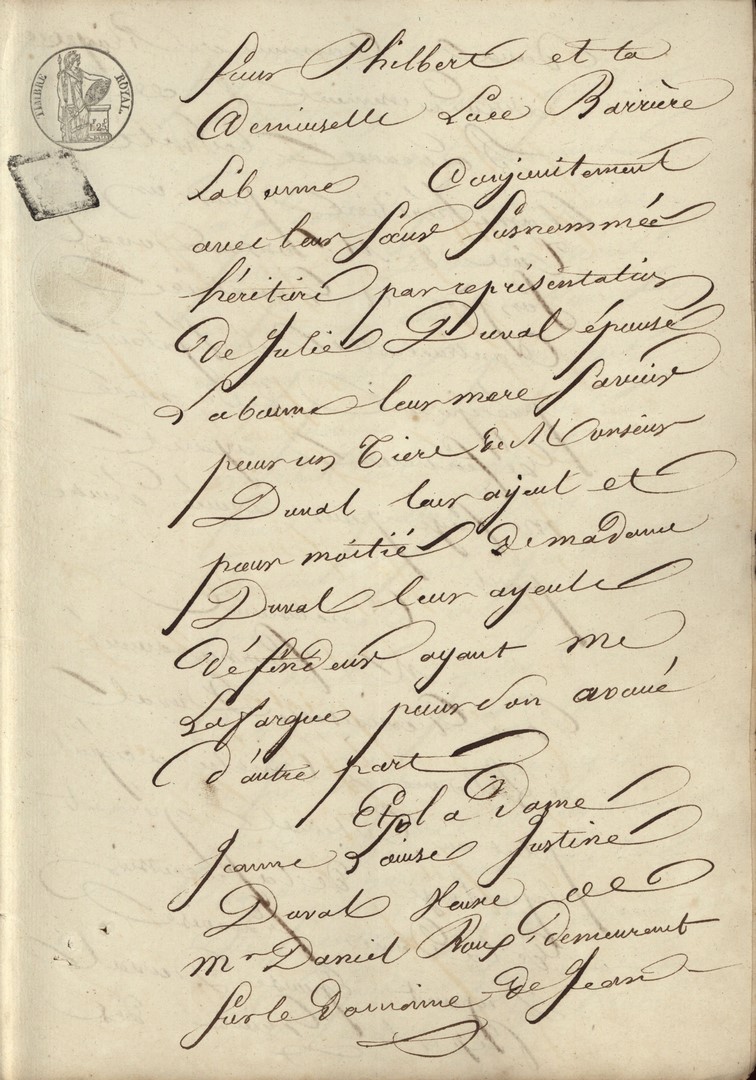 TIMBRE ROYAL
Sieur Philbert et la
Demiuselle Luce Barrière
Laborme Conjointement
avec leur Sœur Susnommée
héritière par représentation
de Julie Duval épouse
Laborme leur mere Savoir
pour un Tiers de Monsieur
Duval leur ayeul et
pour moitié de madame
Duval leur ayeule
défendeur ayant me
Lafargue pour son avoué
d'autre part
Et la Dame
Jeanne Louise Justine
Duval Veuve de
Mr Daniel Roux, demeurant
Sur le Domaine de Jean